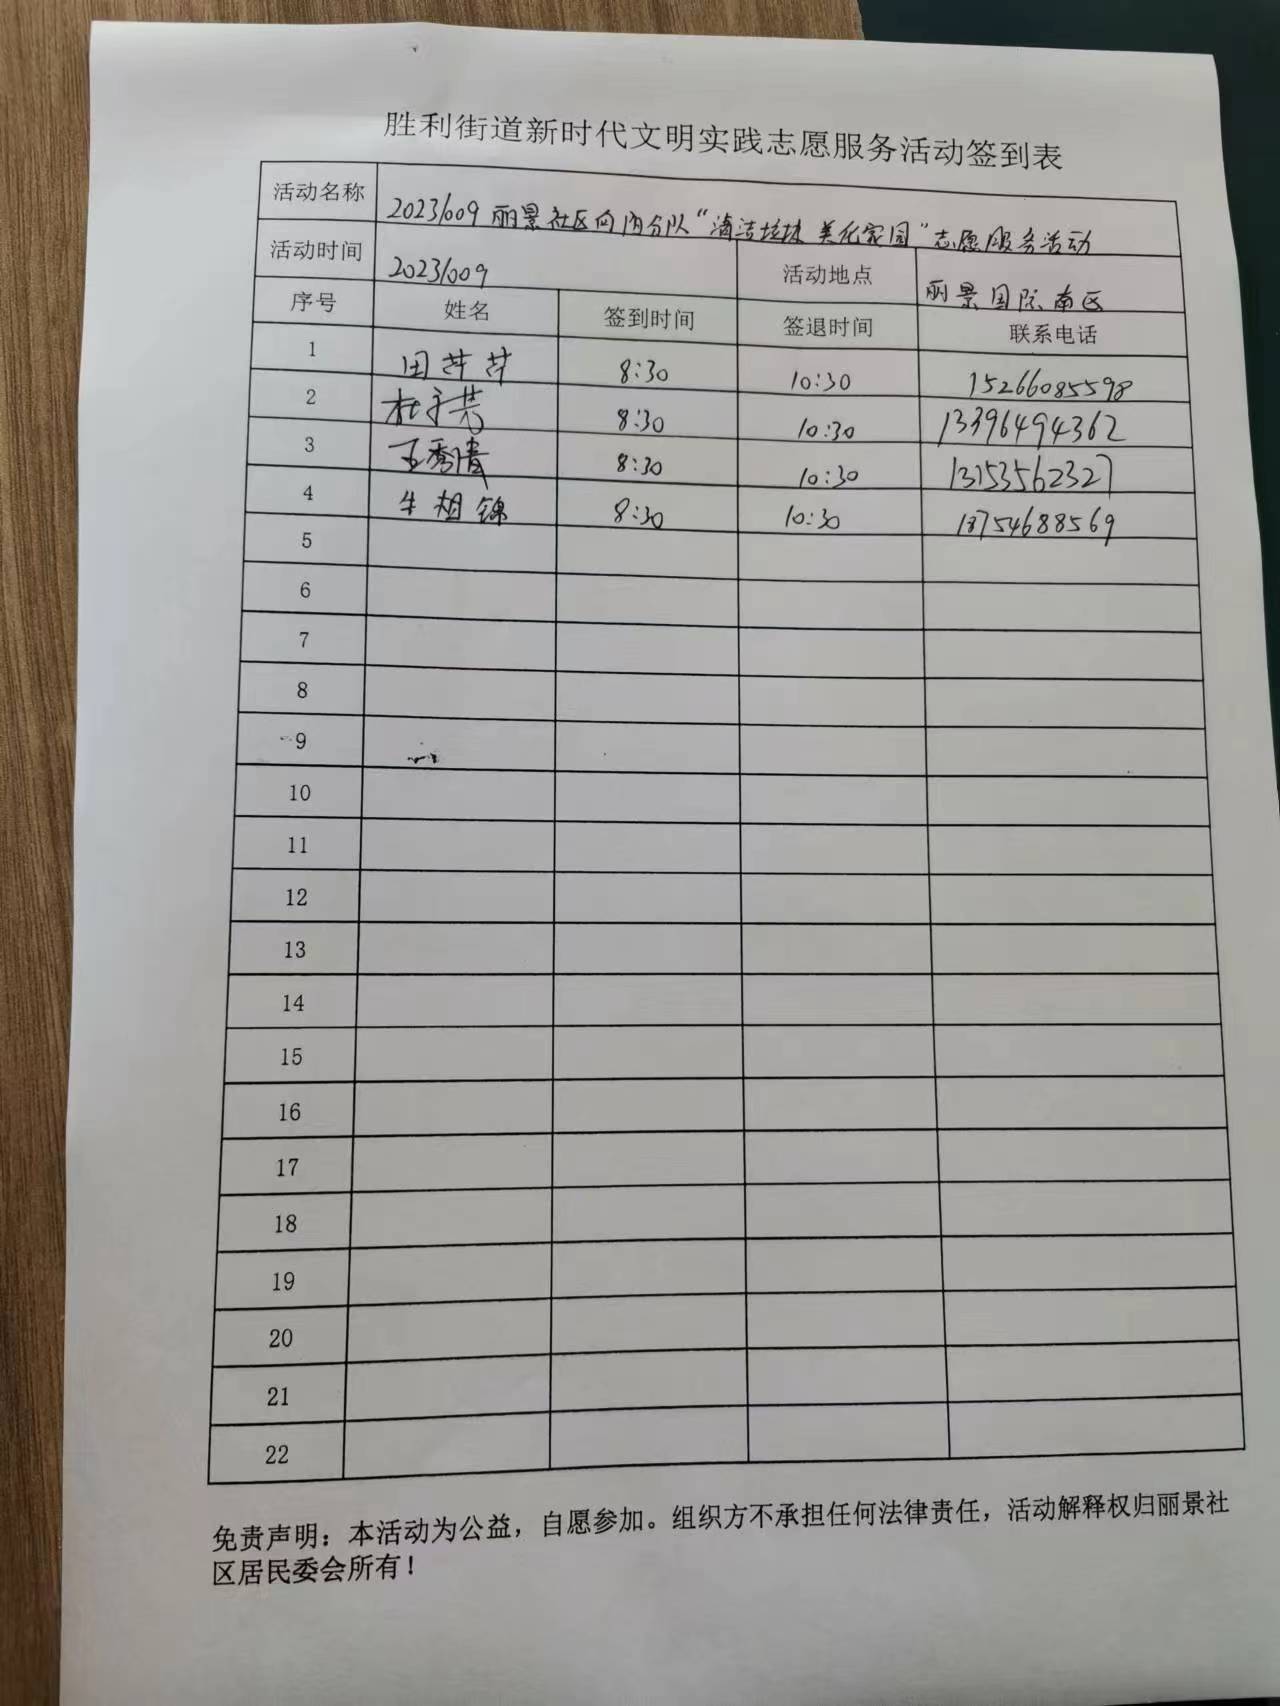 胜利街道新时代文明实践志愿服务活动签到表
活动名称 20231009 丽景社区 分队“清洁垃圾 美化家园”志愿服务活动
活动时间 20231009 活动地点 丽景国际南区
序号 姓名 签到时间 签退时间 联系电话
1 田芹芹 8:30 10:30 15266085598
2 杜 芳 8:30 10:30 13396494362
3 王秀清 8:30 10:30 13153562327
4 牛相锦 8:30 10:30 18754688569
5
6
7
8
9
10
11
12
13
14
15
16
17
18
19
20
21
22
免责声明：本活动为公益，自愿参加。组织方不承担任何法律责任，活动解释权归丽景社
区居民委会所有！